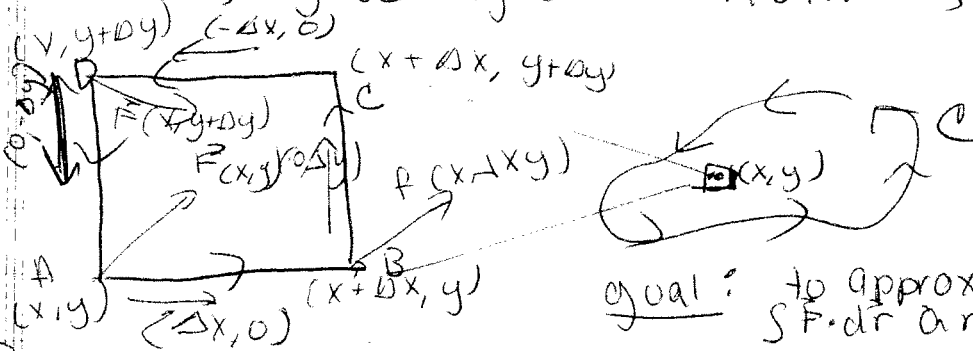 (x, y+Δy)
(-Δx, 0)
(x + Δx, y+Δy)
D
C
(0, -Δy)
F(x, y+Δy)
F(x,y)
(0, Δy)
F(x+Δx, y)
(x,y)
C
A
B
(x,y)
(Δx, 0)
(x+Δx, y)
goal: to approx
∫F·dr ar